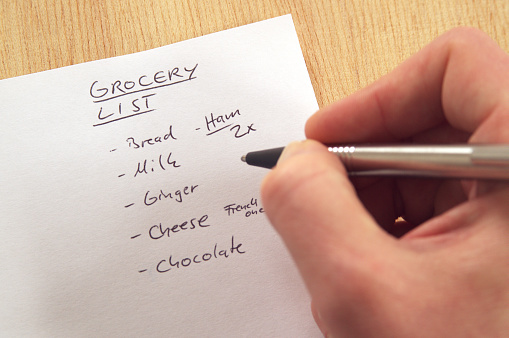 GROCERY
LIST
- Bread - Ham
2x
- Milk
- Ginger
- Cheese French
one
- Chocolate